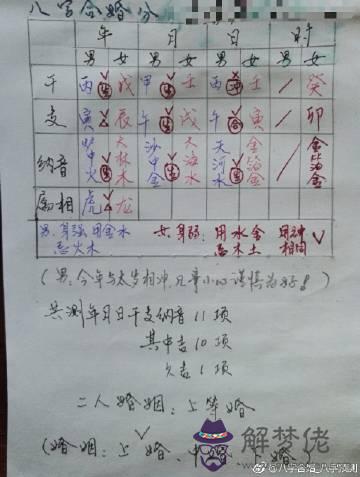 八字合婚分
年 月 日 时
男 女 男 女 男 女 男 女
干 丙 戊 甲 壬 丙 壬 癸
支 寅 辰 午 戌 午 寅 卯
纳音 炉中火 大林木 沙中金 大海水 天河水 金箔金 金箔金
属相 虎 龙
男:身强 用金水 女:身弱:用水金 用神
忌火木 忌木土 相同
(男:今年与太岁相冲,凡事小心谨慎为好!)
共测年月日干支纳音11项
其中吉10项
欠吉1项
二人婚姻:上等婚
(婚姻:上 中 上婚)
解梦佬
@八字合婚_八字预测